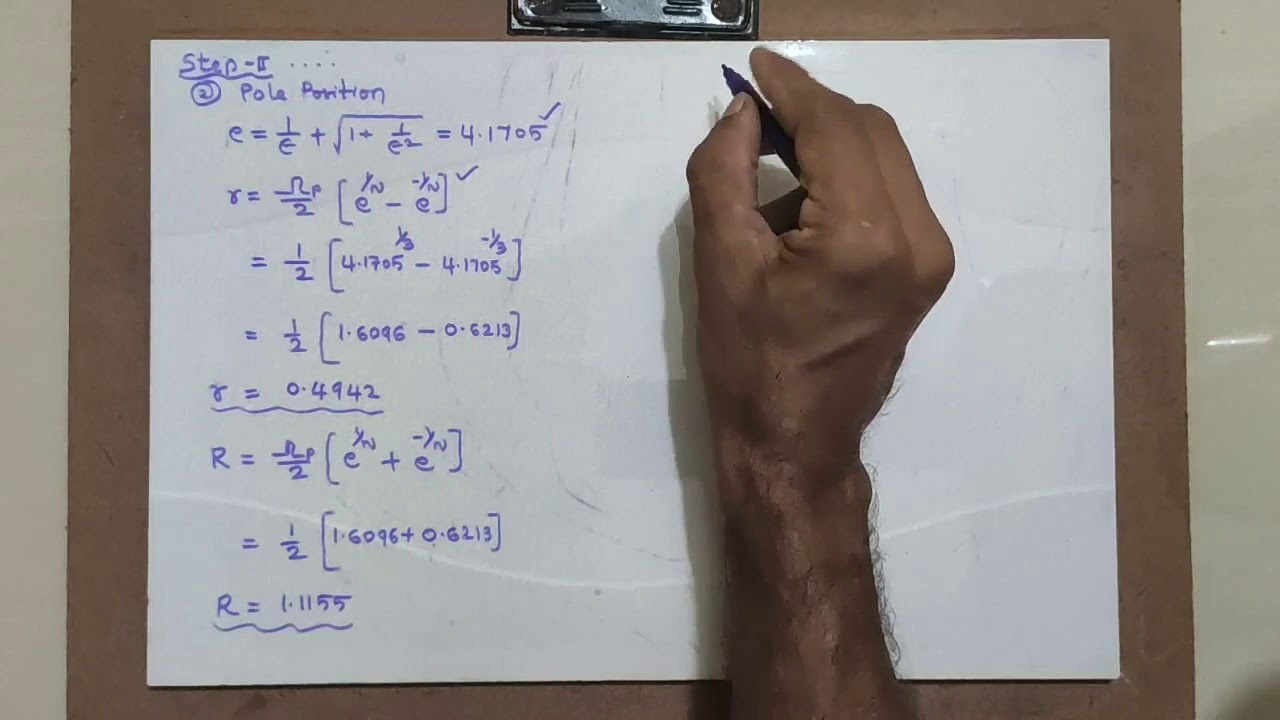 Step-II ....
② Pole Position
e = 1/ε + √(1 + 1/ε²) = 4.1705 ✓
r = Ωp/2 [e^(1/N) - e^(-1/N)] ✓
= 1/2 [4.1705^(1/3) - 4.1705^(-1/3)]
= 1/2 [1.6096 - 0.6213]
r = 0.4942
R = Ωp/2 [e^(1/N) + e^(-1/N)]
= 1/2 [1.6096 + 0.6213]
R = 1.1155